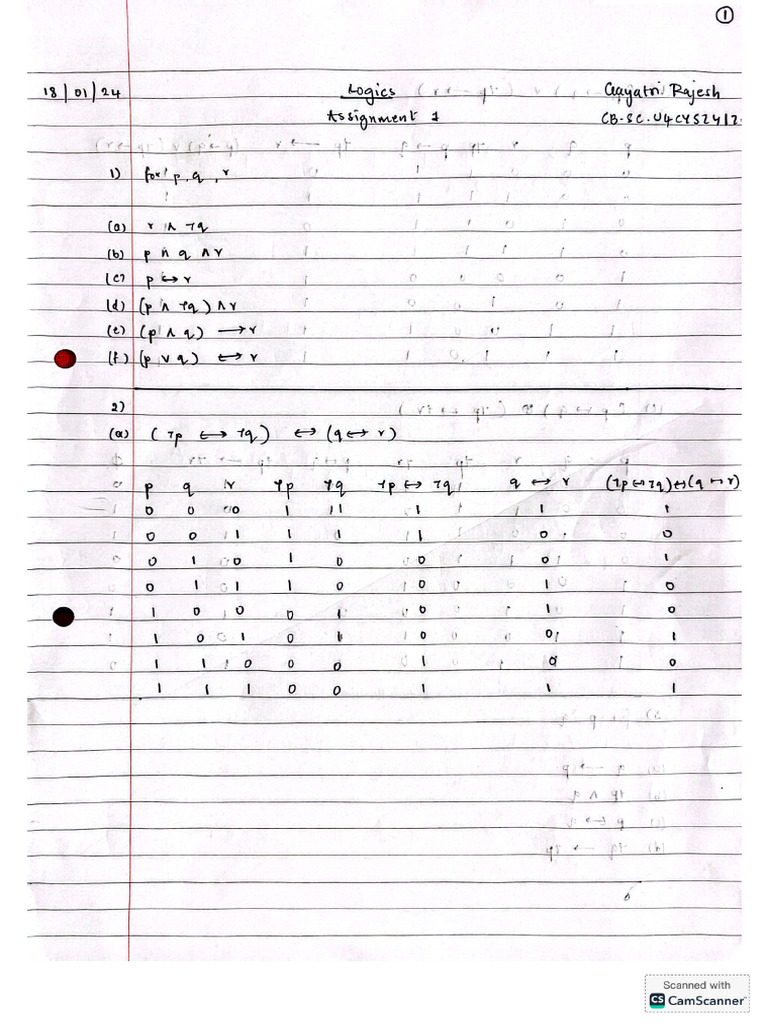 ①
18/01/24 Logics Gayatri Rajesh
Assignment 1 CB.SC.U4CYS2412
1) for p, q, r
(a) r ∧ ¬q
(b) p ∧ q ∧ r
(c) p ↔ r
(d) (p ∧ ¬q) ∧ r
(e) (p ∧ q) → r
(f) (p ∨ q) ↔ r
2)
(a) (¬p ↔ ¬q) ↔ (q ↔ r)
p q r ¬p ¬q ¬p ↔ ¬q q ↔ r (¬p↔¬q)↔(q↔r)
0 0 0 1 1 1 1 1
0 0 1 1 1 1 0 0
0 1 0 1 0 0 0 1
0 1 1 1 0 0 1 0
1 0 0 0 1 0 1 0
1 0 1 0 1 0 0 1
1 1 0 0 0 1 0 0
1 1 1 0 0 1 1 1
Scanned with
CS CamScanner